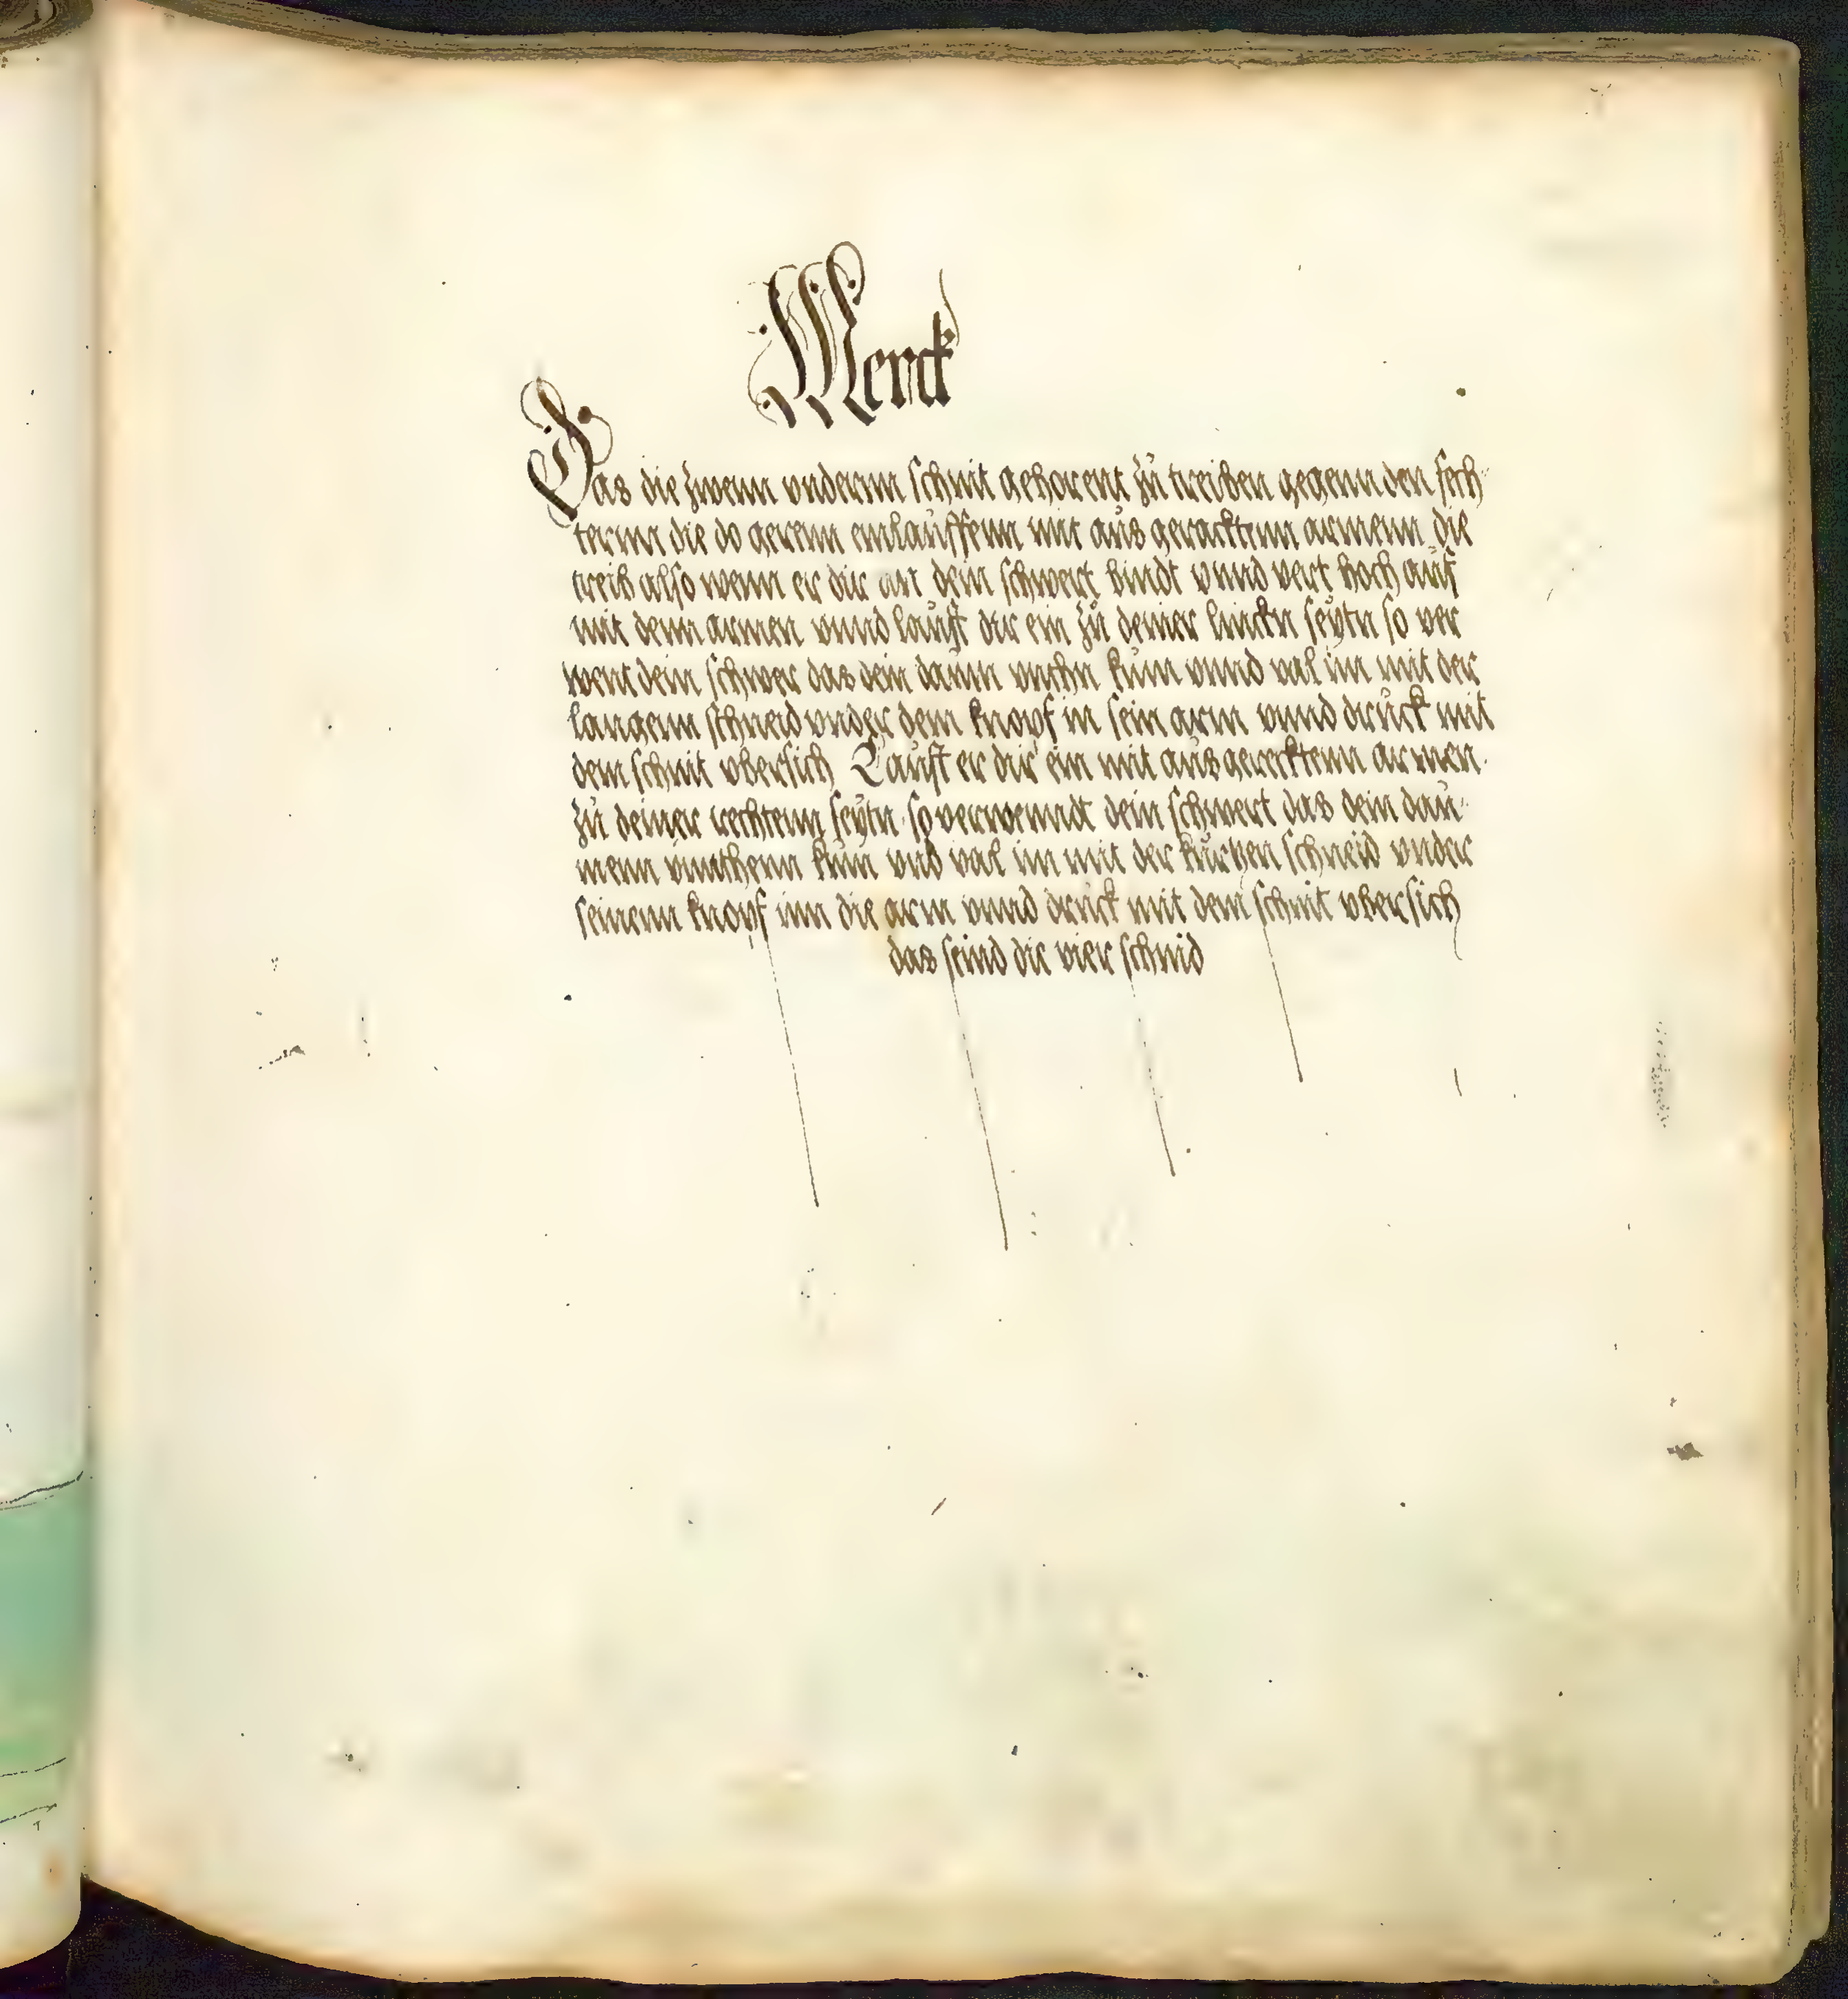 Merck
Das die zwenn vndernn schnit gehorent zů treiben gegenn den fech
ternn die do gerenn einlauffenn mit aůs gerackttnn armenn die
treib also wenn er dir an dein schwert bindt vnnd vert hoch auf
mit denn armen vnnd laůft dir ein zů deiner linckn seytn so ver
went dein schwer das dein daům vnthn kům vnnd val im mit der
langenn schneid vnder dem knopf in sein arm vnnd drůck mit
dem schnit vbersich Laůft er dir ein mit aůsgerecktenn armen
zů deiner rechtenn seytn so verwenndt dein schwert das dein daů
menn vnnthenn kům vnd val im mit der kůrtzen schneid vnder
seinenn knopf inn die arm vnnd drůck mit dem schnit vbersich
das seind die vier schnid